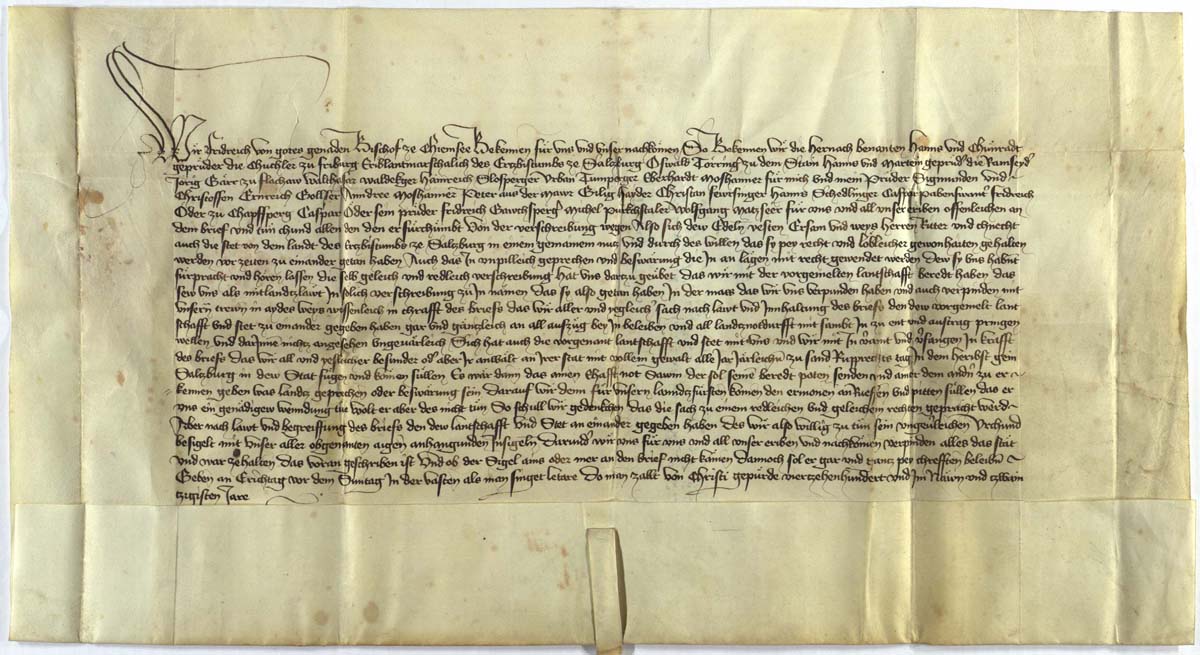 Wir Fridreich von gotes genaden Bischof ze Chiemsee Bekennen für uns und unser nachkomen So Bekennen wir die hernach benanten Hanns und Chunradt
geprüder die Chuchler zu friburg Erblantmarschalich des Erzbistumbs ze Salzburg Oswalt Törring zu dem Stain Hanns und Martein geprüd die Ramseyd
Jorig zu flachaw Walthasar Waldekger Hainreich Slosperger Urban Eberhardt Moshaimer für mich und mein Prüder Sigmunden und
Christoffen Ernreich Andree Moshaimer Peter aus der Mawr Gilig Hayder Christan Hanns Schedlinger Caspar fridreich
Oder zu Caspar Oder sein prüder fridreich Gawchsperg Michel Wolfgang Matzseer für uns und all unser eriben offenleichen an
dem brief und tun chund allen den den er fürchümbt Von der verschreibung wegen Also sich dew Edeln vesten Ersam und weys herren Ritter und chnecht
auch die stet von dem landt des Erzbistumbs ze Salzburg in einem gemainem nuz und durch des willen das sy pey recht und löbleicher gewonhaiten gehalten
werden vor zeiten zu einander getan haben Auch das In unpilleich geprechen und beswärung die In an lagen mit recht gewendet werden Dew sy uns habnt
fürpracht und hören lassen die selb geleich und redleich verschreibung hat uns darzu geübet Das wir mit der vorgemelten lantschafft beredt haben das
sew uns als mitlandtzläwt In solich verschreibung zu In nämen Das sy also getan haben In der mass das wir uns verpunden haben und auch verpinden mit
unsern trewn in aydes weys wissenleich in chrafft des briefs das wir aller und yegleich sach nach lawt und Innhaltung des briefs den dew vorgemelt lant
schafft und stet zu einander gegeben haben gar und gänzleich an all auszüg bey In beleiben und all landznoldurfft mit sambt In zu ent und austrag pringen
wellen und darinne nichtz angesehen ungeuärleich Sich hat auch die vorgenant lantschafft und stet mit uns und wir mit In und In krafft
des briefs Das wir all und yeslicher besunder od aber Ir anwält an Irer stat mit vollem gewalt alle Jar Järleichn zu sand Rupprechts tag In dem herbst gein
Salzburg in dew Stat fügen und kömen süllen Es wär dann das ainen ehafft not Sawm der sol seinē beredt poten senden und ainer dem andn zu er-
kennen geben was landtz geprechen oder beswärung sein Darauf wir denn für unsern lanndzfürsten kömen den ermonen an Rüeffen und pitten süllen das er
uns ein genädigew wenndung tue Wolt er aber des nicht tün So schull wir gedenkchen das die sach zu einem redleichen und geleichem rechten gepracht werd
Aber nach lawt und begreiffung des briefs den dew lantschafft und Stet an einander gegeben haben Des wir also willig zu tün sein ungeuërleichn Urchund
besigelt mit unser aller obgenanten aigen anhangunden Insigeln Darund wir uns für uns und all unser eriben und nachkömen verpinden alles das stät
und war ze halten das voran geschriben ist Und ob der Sigel ains oder mer an den brief nicht kämen dannoch sol er gar und gantz pey chrefften beleibn
Geben an Erichtag vor dem Suntag In der vasten als man singet letare Do man zallt von Christi gepürde vierzehenhundert und Im Näwn und tzwain
tzigisten Jare